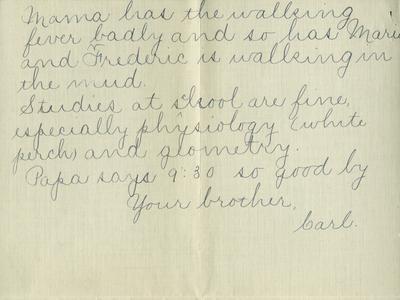 Mama has the walking
fever badly and so has Marie
and Frederic is walking in
the mud.
Studies at shool are fine,
especially physiology (white
perch) and geometry.
Papa says 9:30 so good by
Your brother,
Carl.